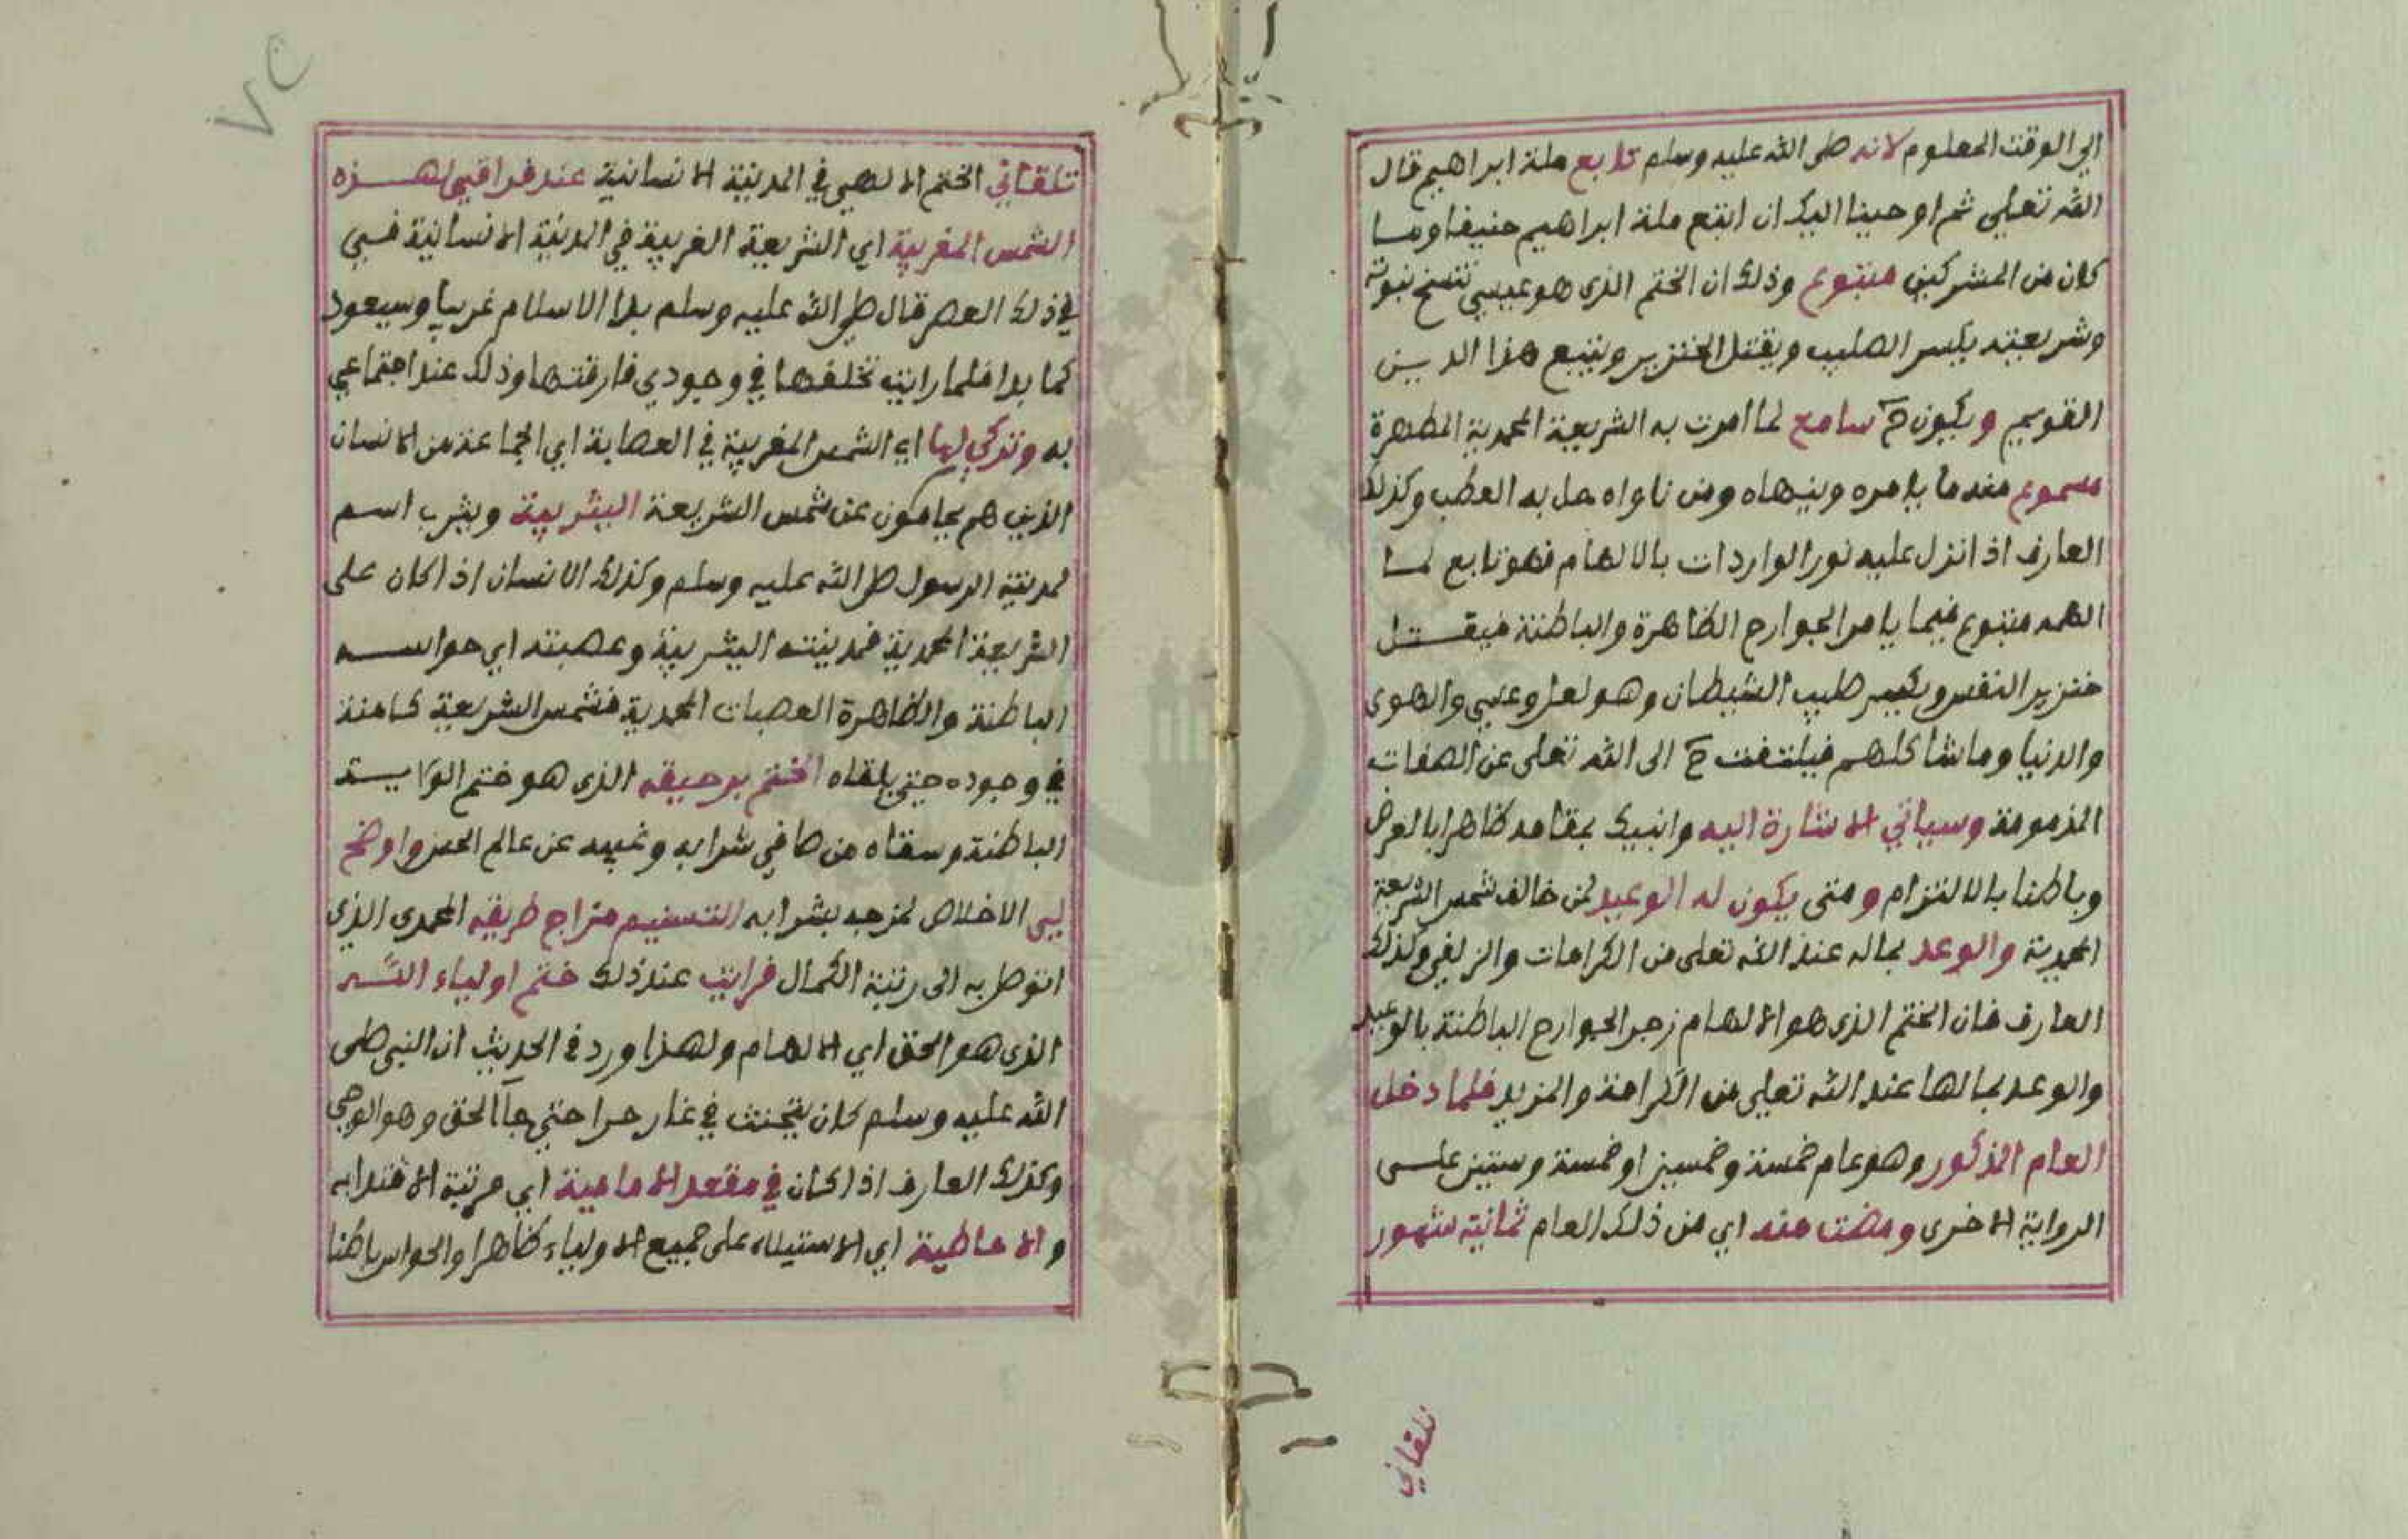 الي الوقت المعلوم لانه صلى الله عليه وسلم تابع ملة ابراهيم قال
الله تعالي ثم اوحينا اليك ان اتبع ملة ابراهيم حنيفا وما
كان من المشركين متبوع وذلك ان الختم الذي هو عيسي تنسخ نبوته
وشريعته يكسر الصليب ويقتل الخنزير ويتبع هذا الدين
القويم ويكون ح سامع لما امرت به الشريعة المحمدية المطهرة
مسموع منه ما يامره وينهاه ومن ناواه حل به العطب وكذلك
العارف اذ انزل عليه نور الواردات بالالهام فهو تابع لما
الهمه متبوع فيما يامر الجوارح الظاهرة والباطنة فيقتل
خنزير النفس ويكسر صليب الشيطان وهو لعل وعسي والهوى
والدنيا وما شاكلهم فيلتفت ح الى الله تعلى عن الصفات
المذمومة وسياتي الاشارة اليه وانبيك بمقامه ظاهرا بالعرض
وباطنا بالالتزام ومتى يكون له الوعيد لمن خالف شمس الشريعة
المحمدية والوعد بماله عند الله تعلى من الكرامات والزلفي وكذلك
العارف فان الختم الذي هو الالهام زجر الجوارح الباطنة بالوعيد
والوعد بما لها عند الله تعلي من الكرامة والمزيد فلما دخل
العام المذكور وهو عام خمسة وخمسين او خمسة وستين على
الرواية الاخرى ومضت منه اي من ذلك العام ثمانية شهور
تلقاني
٧٢
تلقاني الختم الالهي في المدنية الانسانية عند فراقي لهذه
الشمس المغربية اي الشريعة الغريبة في المدنية الانسانية فهي
في ذلك العصر قال صلى الله عليه وسلم بدا الاسلام غريبا وسيعود
كما بدا فلما رايت تخلفها في وجودي فارقتها وذلك عند اجتماعي
به وتركي لها اي الشمس المغربية في العصابة اي الجماعة من الانسان
الذين هم يحامون عن شمس الشريعة اليثربية ويثرب اسم
لمدينة الرسول صلى الله عليه وسلم وكذلك الانسان اذا كان على
الشريعة المحمدية فمدينته اليثربية وعصبته اي حواسه
الباطنة والظاهرة العصبات المحمدية فشمس الشريعة كامنة
في وجوده حتي يلقاه الختم برحيقه الذي هو ختم الولاية
الباطنة وسقاه من صافي شرابه وغيبه عن عالم الحس واوضح
لبي الاخلاص لمزجه بشرابه التسنيم مزاج طريقه المحمدى الذي
اتوصل به الى رتبة الكمال فرايت عند ذلك ختم اولياء الله
الذي هو الحق اي الالهام ولهذا ورد في الحديث ان النبي صلى
الله عليه وسلم كان يتحنث في غار حرا حتي جآ الحق وهو الوحي
وكذلك العارف اذا كان في مقعد الامامية اي مرتبة الاقتدا به
والاحاطية اي الاستيلاء على جميع الاولياء ظاهرا والحواس باطنا